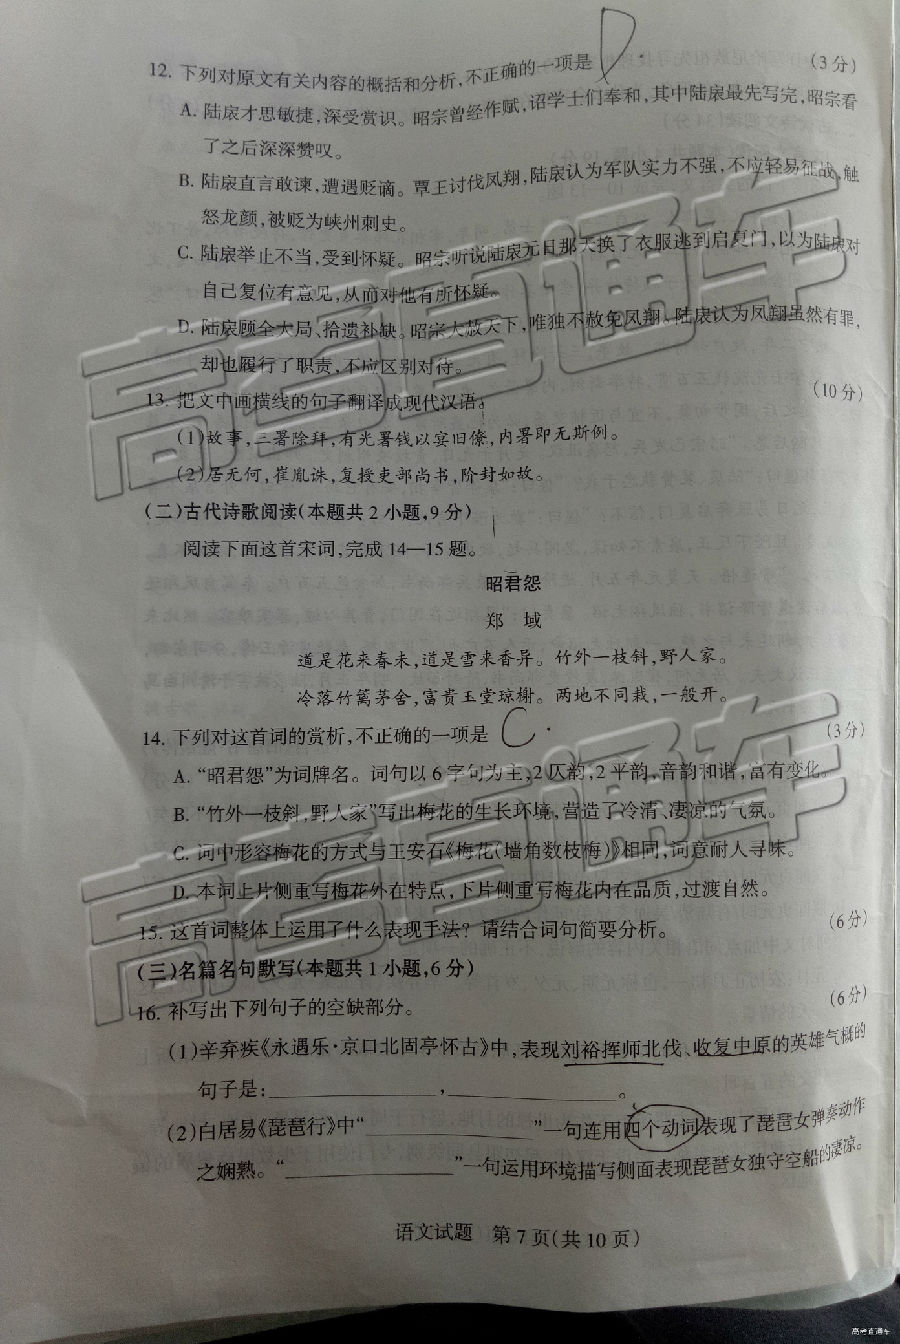 12. 下列对原文有关内容的概括和分析,不正确的一项是 D (3分)
A. 陆扆才思敏捷,深受赏识。昭宗曾经作赋,诏学士们奉和,其中陆扆最先写完,昭宗看
了之后深深赞叹。
B. 陆扆直言敢谏,遭遇贬谪。覃王讨伐凤翔,陆扆认为军队实力不强,不应轻易征战,触
怒龙颜,被贬为峡州刺史。
C. 陆扆举止不当,受到怀疑。昭宗听说陆扆元旦那天换了衣服逃到启夏门,以为陆扆对
自己复位有意见,从而对他有所怀疑。
D. 陆扆顾全大局、拾遗补缺。昭宗大赦天下,唯独不赦免凤翔。陆扆认为凤翔虽然有罪,
却也履行了职责,不应区别对待。
13. 把文中画横线的句子翻译成现代汉语。 (10分)
(1)故事,三署除拜,有光署钱以宾旧僚,内署即无斯例。
(2)居无何,崔胤诛,复授吏部尚书,阶封如故。
(二)古代诗歌阅读(本题共2小题,9分)
阅读下面这首宋词,完成14—15题。
昭君怨
郑 域
道是花来春未,道是雪来香异。竹外一枝斜,野人家。
冷落竹篱茅舍,富贵玉堂琼榭。两地不同栽,一般开。
14. 下列对这首词的赏析,不正确的一项是 C (3分)
A. “昭君怨”为词牌名。词句以6字句为主,2仄韵,2平韵,音韵和谐,富有变化。
B. “竹外一枝斜,野人家”写出梅花的生长环境,营造了冷清、凄凉的气氛。
C. 词中形容梅花的方式与王安石《梅花(墙角数枝梅)》相同,词意耐人寻味。
D. 本词上片侧重写梅花外在特点,下片侧重写梅花内在品质,过渡自然。
15. 这首词整体上运用了什么表现手法?请结合词句简要分析。 (6分)
(三)名篇名句默写(本题共1小题,6分)
16. 补写出下列句子的空缺部分。 (6分)
(1)辛弃疾《永遇乐·京口北固亭怀古》中,表现刘裕挥师北伐、收复中原的英雄气概的
句子是:____________,____________。
(2)白居易《琵琶行》中“____________”一句连用四个动词表现了琵琶女弹奏动作
之娴熟。“____________”一句运用环境描写侧面表现琵琶女独守空船的凄凉。
语文试题 第7页(共10页)
高考直通车
高考直通车
高考直通车